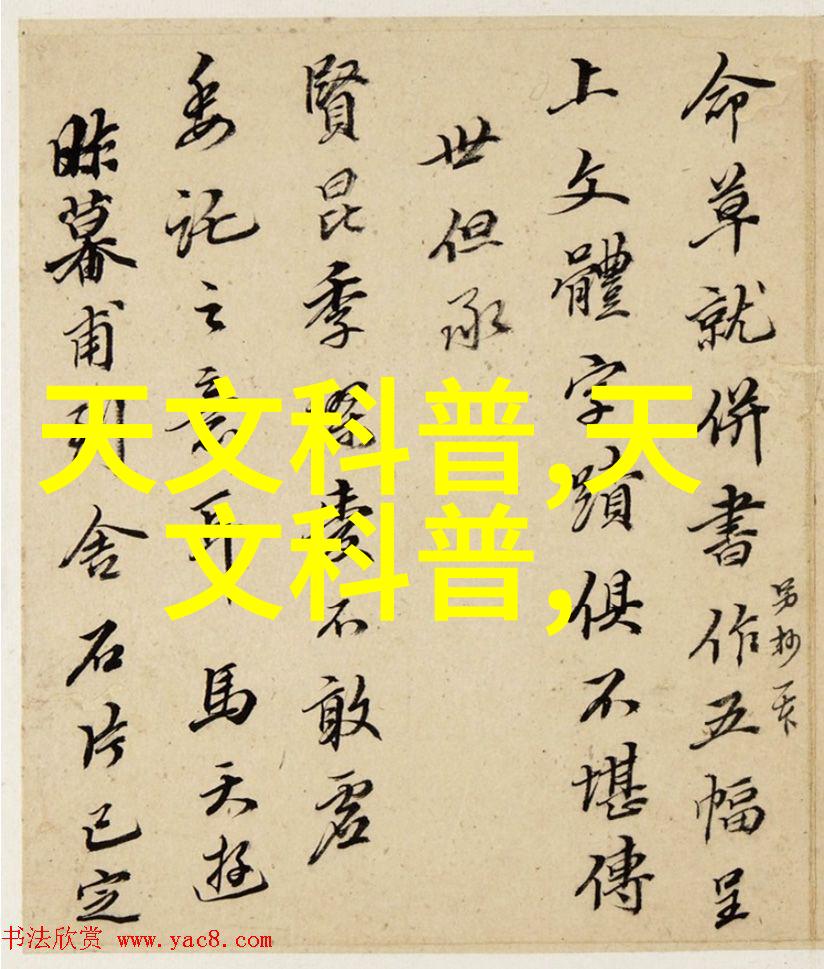 命草就併書作五幅呈
另抄一本
上文體字蹟俱不堪傳
世但承
賢昆季
不敢虛
委託之意耳馬天遊
昨暮甫到舍石片已定
天文科普,天
文科普,
书法欣赏 www.yac8.com